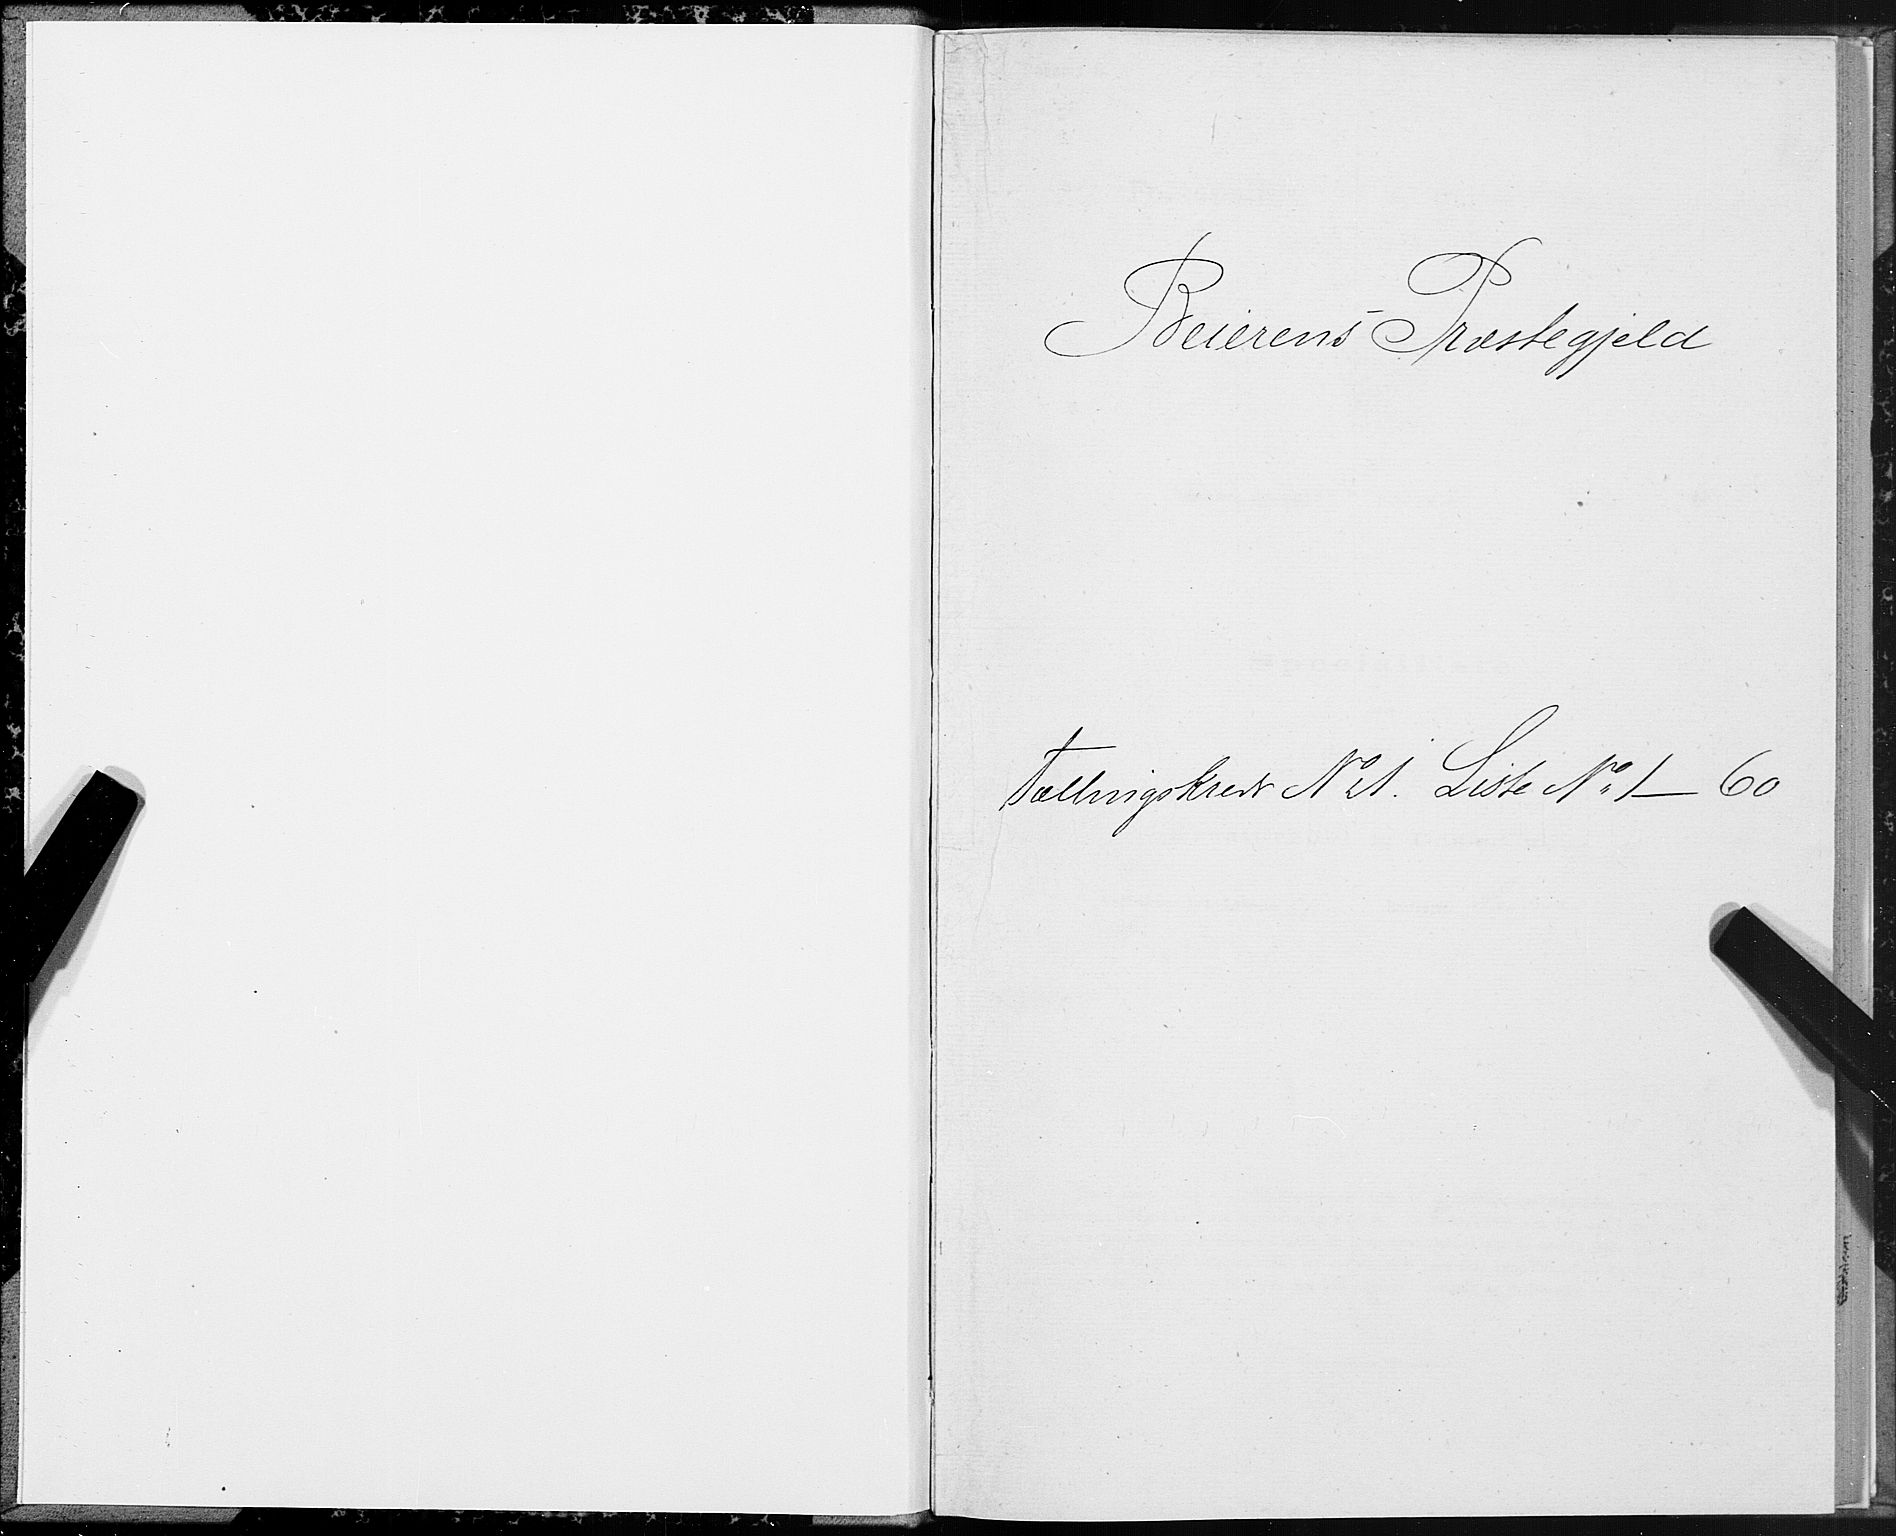 Beierens Præstegjeld
Tællingskreds No 1. Liste No 1 — 60